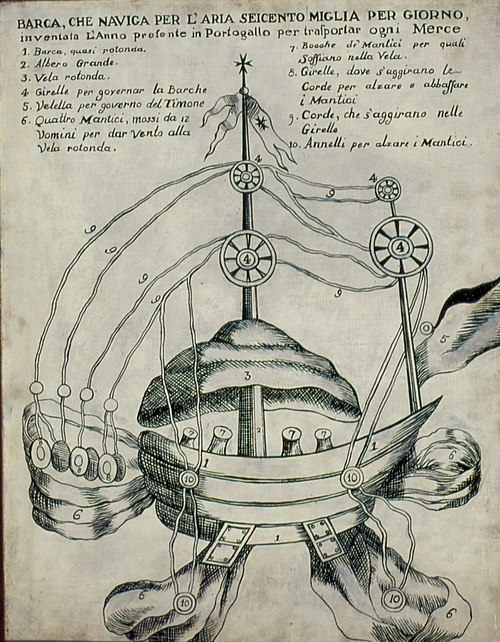 BARCA, CHE NAVIGA PER L'ARIA SEICENTO MIGLIA PER GIORNO,
inventata L'Anno presente in Portogallo per trasportar ogni Merce
1. Barca, quasi rotonda.
2. Albero Grande.
3. Vela rotonda.
4 Girelle per governar la Barche
5. Veletta per governo del Timone
6. Quattro Mantici, mossi da 12
Vomini per dar Vento alla
Vela rotonda.
7. Bocche di Mantici per quali
Soffiano nella Vela.
8. Girelle, dove s'aggirano le
Corde per alzare e abbassare
i Mantici
9. Corde, che s'aggirano nelle
Girelle
10. Annelli per alzare i Mantici.
4
4
9
9
9
9
9
9
4
4
9
5
3
2
7
7
7
7
1
1
8
10
10
6
6
1
6
10
10
6